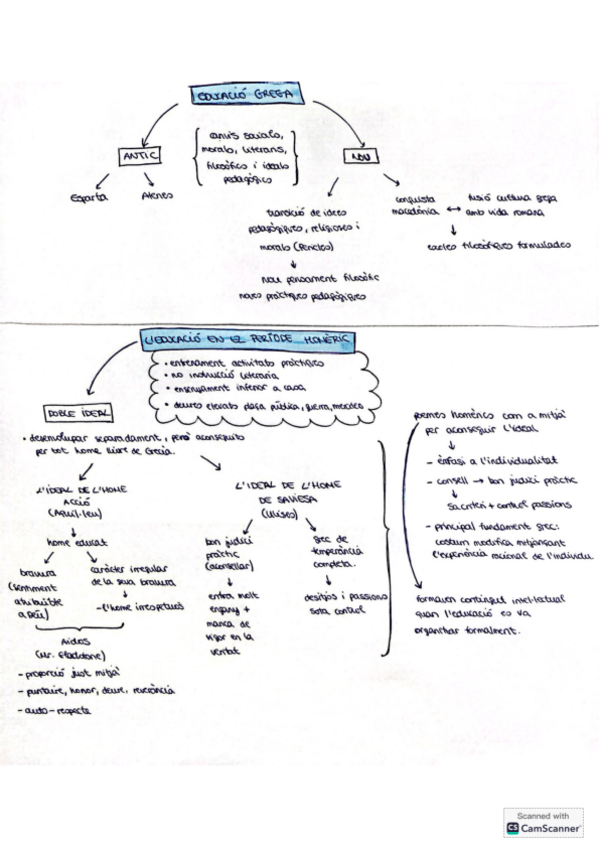 EDUCACIÓ GREGA
canvis socials,
morals, literaris,
filosòfics i ideals
pedagògics
ANTIC
NOU
Esparta
Atenes
transició de idees
pedagògiques, religioses i
morals (Pericles)
nou pensament filosòfic
noves pràctiques pedagògiques
conquista
macedònia
fusió cultura grega
amb vida romana
escoles filosòfiques formulades
L'EDUCACIÓ EN EL PERÍODE HOMÈRIC
• entrenament activitats pràctiques
• no instrucció literaria
• ensenyament inferior a casa,
• deures elevats plaça pública, guerra,
DOBLE IDEAL
• desenvolupar separadament, però aconseguits
per tot home lliure de Grecia.
L'IDEAL DE L'HOME
ACCIÓ
(Aquil·leu)
home educat
bravura
(sentiment
atribuible
a Déu)
caràcter irregular
de la seva bravura
- l'home irrespetuós
Aidos
(sr. Gladdone)
- proporció just mitjà
- honor, deure, reverència
- auto-respecte
L'IDEAL DE L'HOME
DE SAVIESA
(Ulises)
bon judici
pràctic
(aconsellar)
entra molt
engany +
manca de
vigor en la
veritat
grec de
temperància
completa.
desitjos i passions
sota control
poemes homèrics com a mitjà
per aconseguir l'ideal
- èmfasi a l'individualitat
- consell → bon judici pràctic
sa criteri + control passions
- principal fundament grec:
costum modifica mitjançant
l'experiència racional de l'individu.
formaven contingut intel·lectual
quan l'educació es va
organitzar formalment.
Scanned with
CS CamScanner